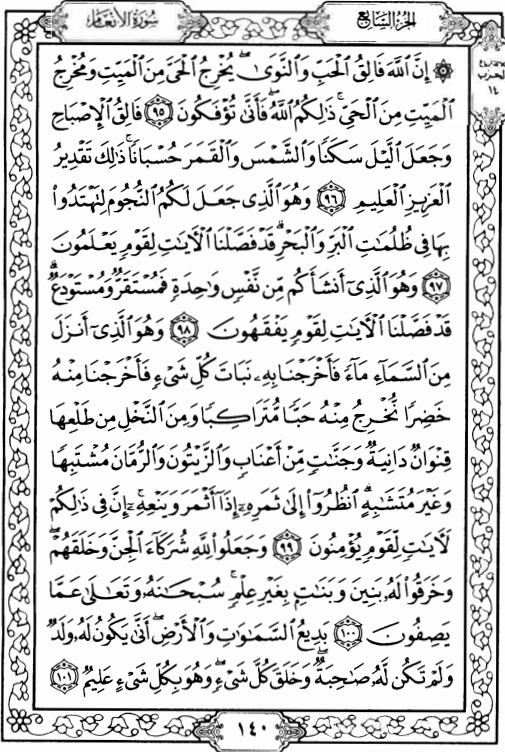 الجزء السابع
سورة الأنعام
۞ إِنَّ ٱللَّهَ فَالِقُ ٱلْحَبِّ وَٱلنَّوَىٰ ۖ يُخْرِجُ ٱلْحَىَّ مِنَ ٱلْمَيِّتِ وَمُخْرِجُ
ٱلْمَيِّتِ مِنَ ٱلْحَىِّ ۚ ذَٰلِكُمُ ٱللَّهُ ۖ فَأَنَّىٰ تُؤْفَكُونَ ٩٥ فَالِقُ ٱلْإِصْبَاحِ
وَجَعَلَ ٱلَّيْلَ سَكَنًا وَٱلشَّمْسَ وَٱلْقَمَرَ حُسْبَانًا ۚ ذَٰلِكَ تَقْدِيرُ
ٱلْعَزِيزِ ٱلْعَلِيمِ ٩٦ وَهُوَ ٱلَّذِى جَعَلَ لَكُمُ ٱلنُّجُومَ لِتَهْتَدُوا۟
بِهَا فِى ظُلُمَٰتِ ٱلْبَرِّ وَٱلْبَحْرِ ۗ قَدْ فَصَّلْنَا ٱلْآيَٰتِ لِقَوْمٍ يَعْلَمُونَ
٩٧ وَهُوَ ٱلَّذِىٓ أَنشَأَكُم مِّن نَّفْسٍ وَٰحِدَةٍ فَمُسْتَقَرٌّ وَمُسْتَوْدَعٌ ۗ
قَدْ فَصَّلْنَا ٱلْآيَٰتِ لِقَوْمٍ يَفْقَهُونَ ٩٨ وَهُوَ ٱلَّذِىٓ أَنزَلَ
مِنَ ٱلسَّمَآءِ مَآءً فَأَخْرَجْنَا بِهِۦ نَبَاتَ كُلِّ شَىْءٍ فَأَخْرَجْنَا مِنْهُ
خَضِرًا نُّخْرِجُ مِنْهُ حَبًّا مُّتَرَاكِبًا وَمِنَ ٱلنَّخْلِ مِن طَلْعِهَا
قِنْوَانٌ دَانِيَةٌ وَجَنَّٰتٍ مِّنْ أَعْنَابٍ وَٱلزَّيْتُونَ وَٱلرُّمَّانَ مُشْتَبِهًا
وَغَيْرَ مُتَشَٰبِهٍ ۗ ٱنظُرُوٓا۟ إِلَىٰ ثَمَرِهِۦٓ إِذَآ أَثْمَرَ وَيَنْعِهِۦٓ ۚ إِنَّ فِى ذَٰلِكُمْ
لَآيَٰتٍ لِّقَوْمٍ يُؤْمِنُونَ ٩٩ وَجَعَلُوا۟ لِلَّهِ شُرَكَآءَ ٱلْجِنَّ وَخَلَقَهُمْ ۖ
وَخَرَقُوا۟ لَهُۥ بَنِينَ وَبَنَٰتٍۭ بِغَيْرِ عِلْمٍ ۚ سُبْحَٰنَهُۥ وَتَعَٰلَىٰ عَمَّا
يَصِفُونَ ١٠٠ بَدِيعُ ٱلسَّمَٰوَٰتِ وَٱلْأَرْضِ ۖ أَنَّىٰ يَكُونُ لَهُۥ وَلَدٌ
وَلَمْ تَكُن لَّهُۥ صَٰحِبَةٌ ۖ وَخَلَقَ كُلَّ شَىْءٍ ۖ وَهُوَ بِكُلِّ شَىْءٍ عَلِيمٌ ١٠١
١٤٠
الحزب
١٤